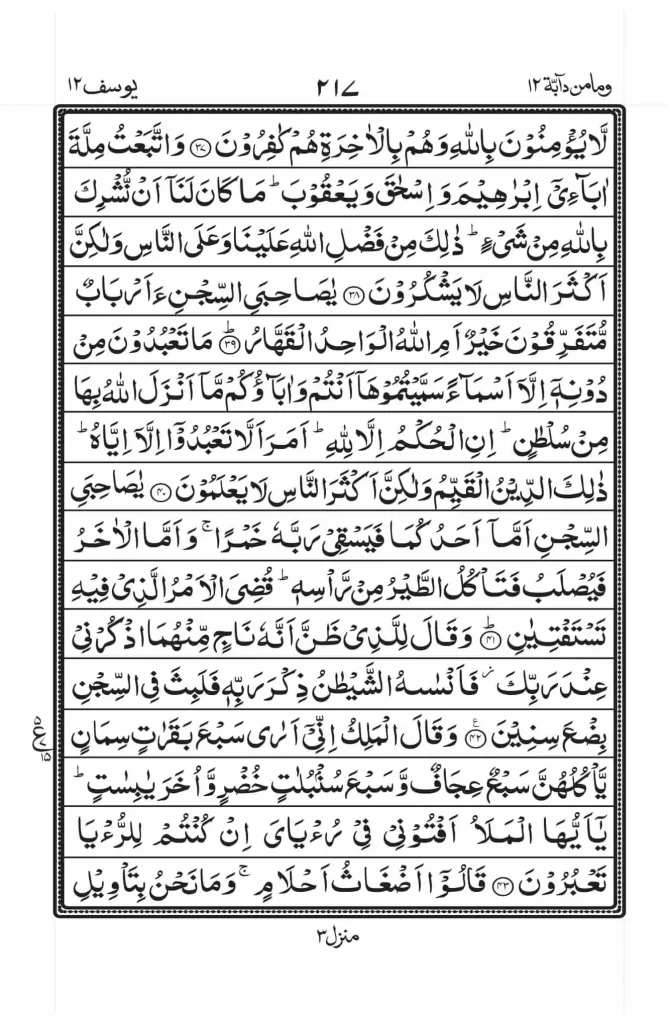 وما من دآبة ١٢ ٢١٧ يوسف ١٢
لَّا يُؤْمِنُوْنَ بِاللّٰهِ وَهُمْ بِالْاٰخِرَةِ هُمْ كٰفِرُوْنَ ﴿۳۷﴾ وَاتَّبَعْتُ مِلَّةَ
اٰبَآءِیْۤ اِبْرٰهِیْمَ وَ اِسْحٰقَ وَ یَعْقُوْبَ ؕ مَا كَانَ لَنَاۤ اَنْ نُّشْرِكَ
بِاللّٰهِ مِنْ شَیْءٍ ؕ ذٰلِكَ مِنْ فَضْلِ اللّٰهِ عَلَیْنَا وَعَلَی النَّاسِ وَلٰكِنَّ
اَكْثَرَ النَّاسِ لَا یَشْكُرُوْنَ ﴿۳۸﴾ یٰصَاحِبَیِ السِّجْنِ ءَاَرْبَابٌ
مُّتَفَرِّقُوْنَ خَیْرٌ اَمِ اللّٰهُ الْوَاحِدُ الْقَهَّارُ ﴿۳۹﴾ؕ مَا تَعْبُدُوْنَ مِنْ
دُوْنِهٖۤ اِلَّاۤ اَسْمَآءً سَمَّیْتُمُوْهَاۤ اَنْتُمْ وَاٰبَآؤُكُمْ مَّاۤ اَنْزَلَ اللّٰهُ بِهَا
مِنْ سُلْطٰنٍ ؕ اِنِ الْحُكْمُ اِلَّا لِلّٰهِ ؕ اَمَرَ اَلَّا تَعْبُدُوْۤا اِلَّاۤ اِیَّاهُ ؕ
ذٰلِكَ الدِّیْنُ الْقَیِّمُ وَلٰكِنَّ اَكْثَرَ النَّاسِ لَا یَعْلَمُوْنَ ﴿۴۰﴾ یٰصَاحِبَیِ
السِّجْنِ اَمَّاۤ اَحَدُكُمَا فَیَسْقِیْ رَبَّهٗ خَمْرًا ۚ وَاَمَّا الْاٰخَرُ
فَیُصْلَبُ فَتَاْكُلُ الطَّیْرُ مِنْ رَّاْسِهٖ ؕ قُضِیَ الْاَمْرُ الَّذِیْ فِیْهِ
تَسْتَفْتِیٰنِ ﴿۴۱﴾ؕ وَقَالَ لِلَّذِیْ ظَنَّ اَنَّهٗ نَاجٍ مِّنْهُمَا اذْكُرْنِیْ
عِنْدَ رَبِّكَ ؗ فَاَنْسٰىهُ الشَّیْطٰنُ ذِكْرَ رَبِّهٖ فَلَبِثَ فِی السِّجْنِ
بِضْعَ سِنِیْنَ ﴿۴۲﴾ؑ وَقَالَ الْمَلِكُ اِنِّیْۤ اَرٰی سَبْعَ بَقَرٰتٍ سِمَانٍ
یَّاْكُلُهُنَّ سَبْعٌ عِجَافٌ وَّسَبْعَ سُنْۢبُلٰتٍ خُضْرٍ وَّاُخَرَ یٰبِسٰتٍ ؕ
یٰۤاَیُّهَا الْمَلَاُ اَفْتُوْنِیْ فِیْ رُءْیَایَ اِنْ كُنْتُمْ لِلرُّءْیَا
تَعْبُرُوْنَ ﴿۴۳﴾ قَالُوْۤا اَضْغَاثُ اَحْلَامٍ ۚ وَمَا نَحْنُ بِتَاْوِیْلِ
منزل ٣